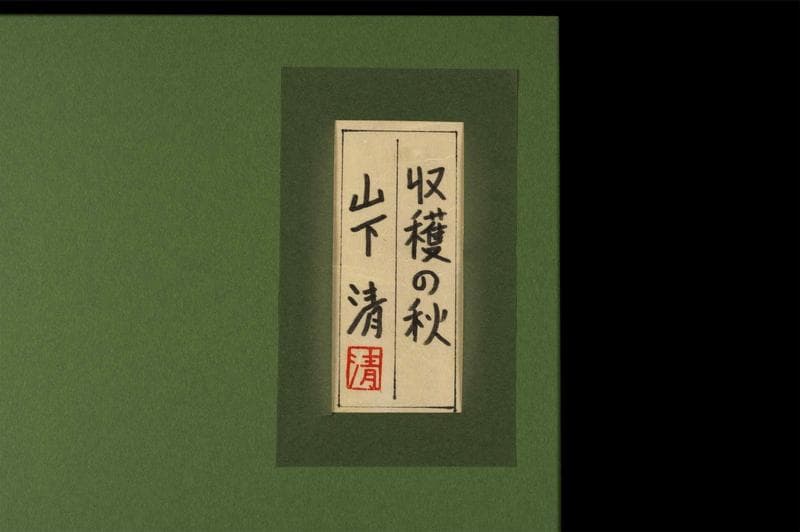 収穫の秋
山下 清
清